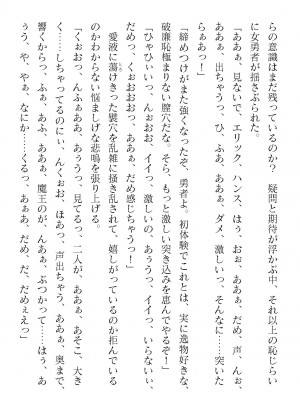 らの意識はまだ残っているのか？　疑問と期待が浮かぶ中、それ以上の恥じらい
に女勇者が揺さぶられた。
「ああぁ、見ないで、エリック、ハンス、はぅ、おぉ、ああぁ、だめ、声、んぉ、
ああぁ、出ちゃうっ、ひ、ふぁっ、あああぁ、ダメ、激しいっ、そんなに…突いた
らぁあっ！」
「締めつけがまた強くなったぞ、勇者よ。初体験でこれとは、実に逸物好きな、
破廉恥極まりない膣穴だな。そら、もっと激しい突き込みを恵んでやるぞ！」
「ひゃひぃいっ、んぉおお、イイっ、激しいの、あぅうっ、イイっ、いらないぃ、
だめっ、くぉおおおっ、あああぁ、だめ感じちゃうっ！」
愛液に蕩けきった襞穴を乱雑に掻き乱されて、嬉しがっているのか拒んでいる
のかわからない悩ましげな悲鳴を張り上げる。
「くぉおっ、んふぁああ、ああぁぅっ、見てるっ、二人が、ああぁ、あそこ、大き
く……しちゃってるのにぃ、んくぉお、ほあっ、声出ちゃう、ああぁ、奥まで、
響くからっ、ふぁ、あふ、ああぁ、魔王のが、んあぁ、ぶつかって……はぅ、あ
ぅう、や、やぁ、なにか……くるっ、あぁああ、だめ、だ、だめぇえっ！」